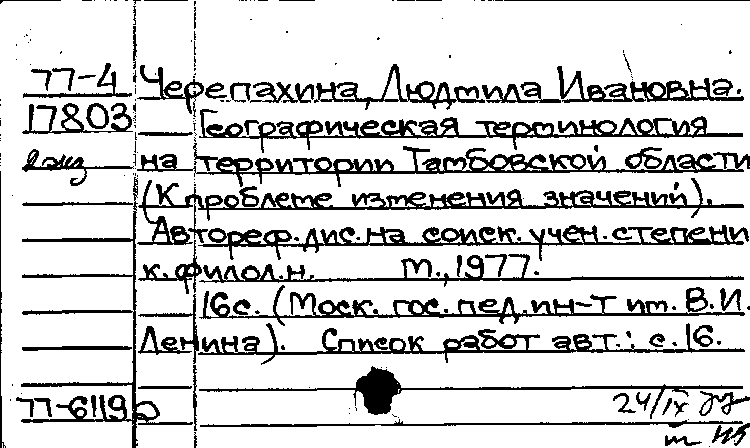 77-4 Черепахина, Людмила Ивановна.
17803 Географическая терминология
2 экз на территории Тамбовской области
(К проблеме изменения значений).
Автореф. дис. на соиск. учен. степени
к. филол. н. М., 1977.
16с. (Моск. гос. пед. ин-т им. В.И.
Ленина). Список работ авт.: с. 16.
77-6119
24/IX